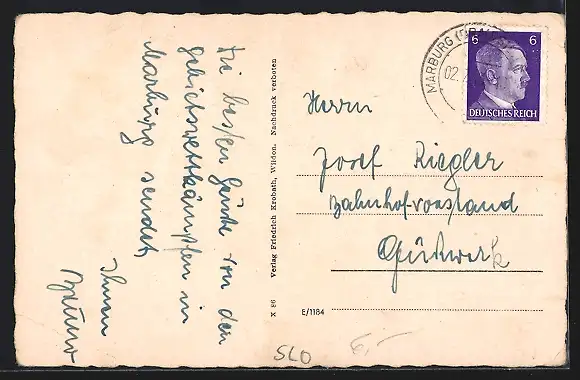 Die besten Grüße von den
Gebietswettkämpfen in
Marburg sendet
Ihnen
Bruno
X 86 Verlag Friedrich Krobath, Wildon. Nachdruck verboten
MARBURG (DRAU)
02.
6 6
DEUTSCHES REICH
Herrn
Josef Riegler
Bahnhofvorstand
E/1184
SLO
6,-